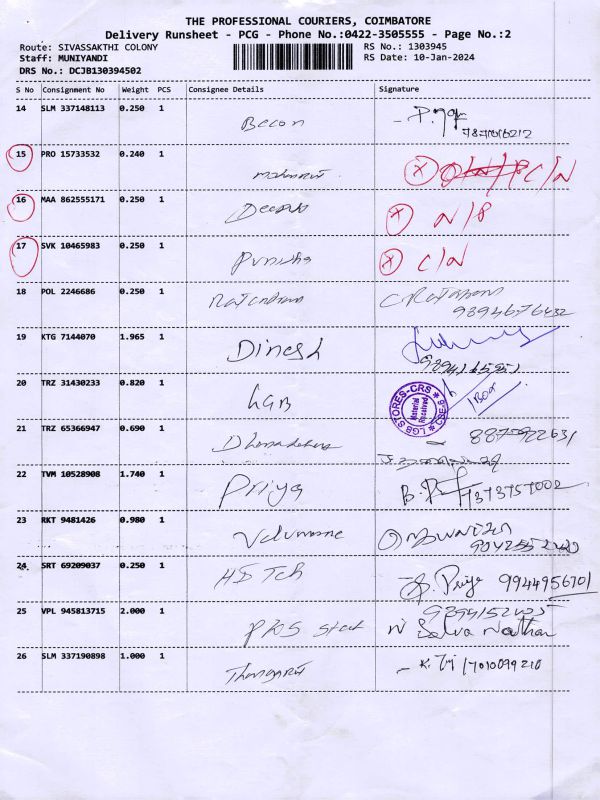 THE PROFESSIONAL COURIERS, COIMBATORE
Delivery Runsheet - PCG - Phone No.:0422-3505555 - Page No.:2
Route: SIVASSAKTHI COLONY
RS No.: 1303945
Staff: MUNIYANDI
RS Date: 10-Jan-2024
DRS No.: DCJB130394502
S No Consignment No Weight PCS Consignee Details Signature
14 SLM 337148113 0.250 1 Becon
15 PRO 15733532 0.240 1 C/N
16 MAA 862555171 0.250 1 Deepak N/S
17 SVK 10465983 0.250 1 Punitha C/N
18 POL 2246686 0.250 1 Rajendran
9894676432
19 KTG 7144070 1.965 1 Dinesh
20 TRZ 31430233 0.820 1 LGB 1 Box
LGB STORES-CRS
Material Received
21 TRZ 65366947 0.690 1
22 TVM 10528908 1.740 1 Priya 7373757002
23 RKT 9481426 0.980 1
24 SRT 69209037 0.250 1 HD Tch Priya 9944956701
25 VPL 945813715 2.000 1 Selva Nathan
26 SLM 337190898 1.000 1 Thangaraj 7010099210